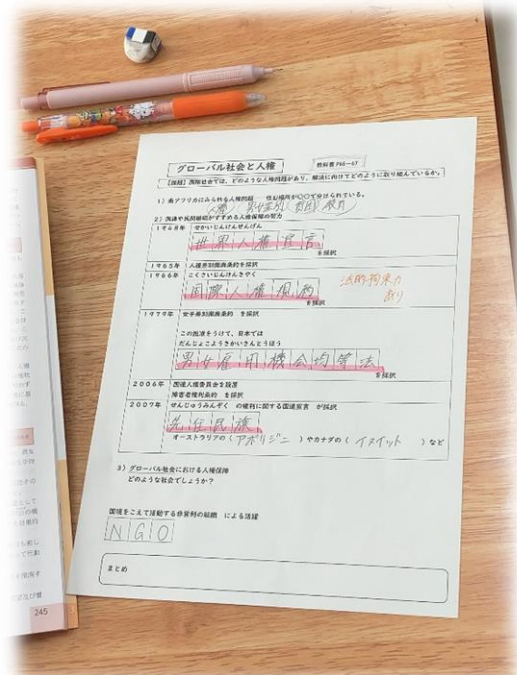 グローバル社会と人権
教科書 P66−67
【課題】国際社会では、どのような人権問題があり、解決に向けてどのように取り組んでいるか。
1）南アフリカにみられる人権問題　住む場所が〇〇で分けられている。
人種　男女差別　貧困　教育
2）国連や民間組織がすすめる人権保障の努力
1948年　せかいじんけんせんげん
世界人権宣言
を採択
1965年　人種差別撤廃条約を採択
1966年　こくさいじんけんきやく
国際人権規約
を採択
法的拘束力
あり
1979年　女子差別撤廃条約　を採択
この批准をうけて、日本では
だんじょこようきかいきんとうほう
男女雇用機会均等法
を採択
2006年　国連人権委員会を設置
障害者権利条約　を採択
2007年　せんじゅうみんぞく　の権利に関する国連宣言　が採択
先住民族
オーストラリアの（アボリジニ）やカナダの（イヌイット）など
3）グローバル社会における人権保障
どのような社会でしょうか？
国境をこえて活動する非営利の組織　による活躍
NGO
まとめ
245